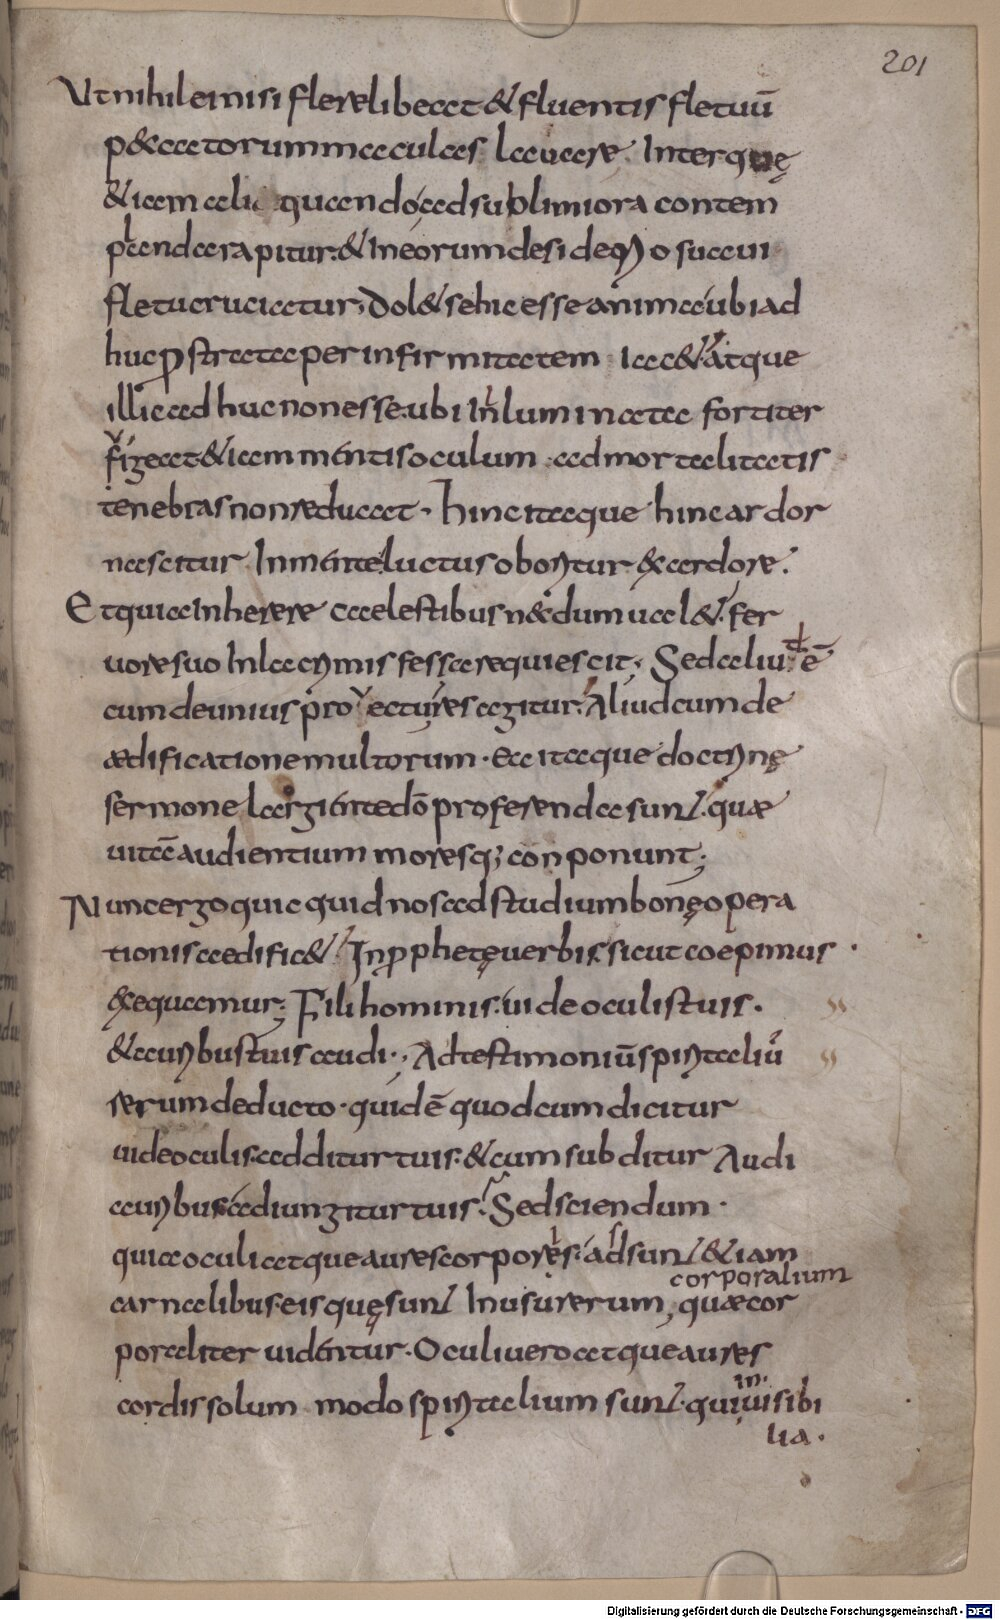 201
Ut nihil ei nisi flere libeat & fluentis fletuū
p&catorum maculas lauare. Inter quę
& iam ali quando ad sublimiora contem
planda rapitur. & In eorum desiderio suaui
fletu cruciatur, Dol& se hic esse anima ubi ad
huc pstrata per infirmitatem iac&. atque
illic adhuc non esse. ubi In lumin ata fortiter
figeat & iam mentis oculum. ad mortalitatis
tenebras non reducat. hinc itaque hinc ardor
nascitur In mente luctus oboritur & ardore.
Et quia Inherere caelestibus n&dum ual&. fer
uore suo In lacrimis fessa requiescit; Sed aliud ē
cum de unius prouectu res agitur. Aliud cum de
ædificatione multorum. Ea itaque doctrinę
sermone largiente dō proferenda sunt. quæ
uitā audientium moresq; conponunt;
Nunc ergo quicquid nos ad studium bonę opera
tionis aedific&. In pphetę uerbis sicut coepimus
exequamur; Fili hominis. uide oculis tuis.
& auribus tuis audi.; Ad testimoniū spiritaliū
rerum deducto. quid ē quod cum dicitur
uide oculis. additur tuis. & cum subditur Audi
auribus. adiungitur tuis. Sed sciendum.
quia oculi atque aures corporis. adsunt & iam
corporalium
carnalibus. eis quę sunt In usu rerum, quæ cor
poraliter uidentur. Oculi uero atque aures
in.
cordis solum modo spiritalium sunt. qui uisibi
lia.
Digitalisierung gefördert durch die Deutsche Forschungsgemeinschaft - DFG